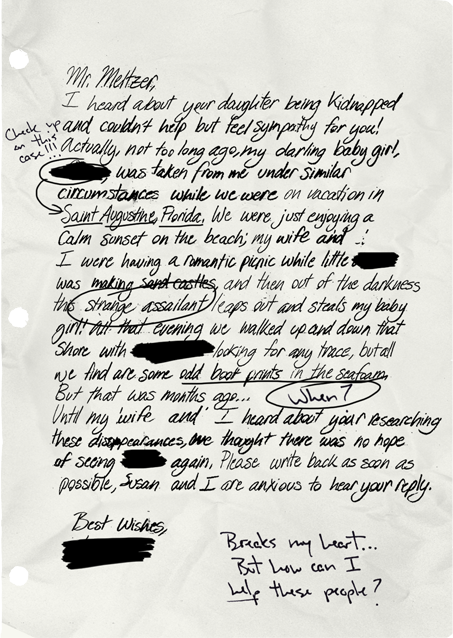 Mr. Meltzer,
I heard about your daughter being kidnapped
and couldn't help but feel sympathy for you!
Check up
on this
case!!!
actually, not too long ago, my darling baby girl,
was taken from me under similar
circumstances while we were on vacation in
Saint Augustine, Florida. We were just enjoying a
calm sunset on the beach; my wife and
I were having a romantic picnic while little
was making sand castles, and then out of the darkness
this strange assailant leaps out and steals my baby
girl! All that evening we walked up and down that
shore with looking for any trace, but all
we find are some odd book prints in the seafoam.
But that was months ago... When?
Until my 'wife and' I heard about your researching
these disappearances, we thought there was no hope
of seeing again, Please write back as soon as
possible, Susan and I are anxious to hear your reply.
Best Wishes,
Breaks my heart...
But how can I
help these people?